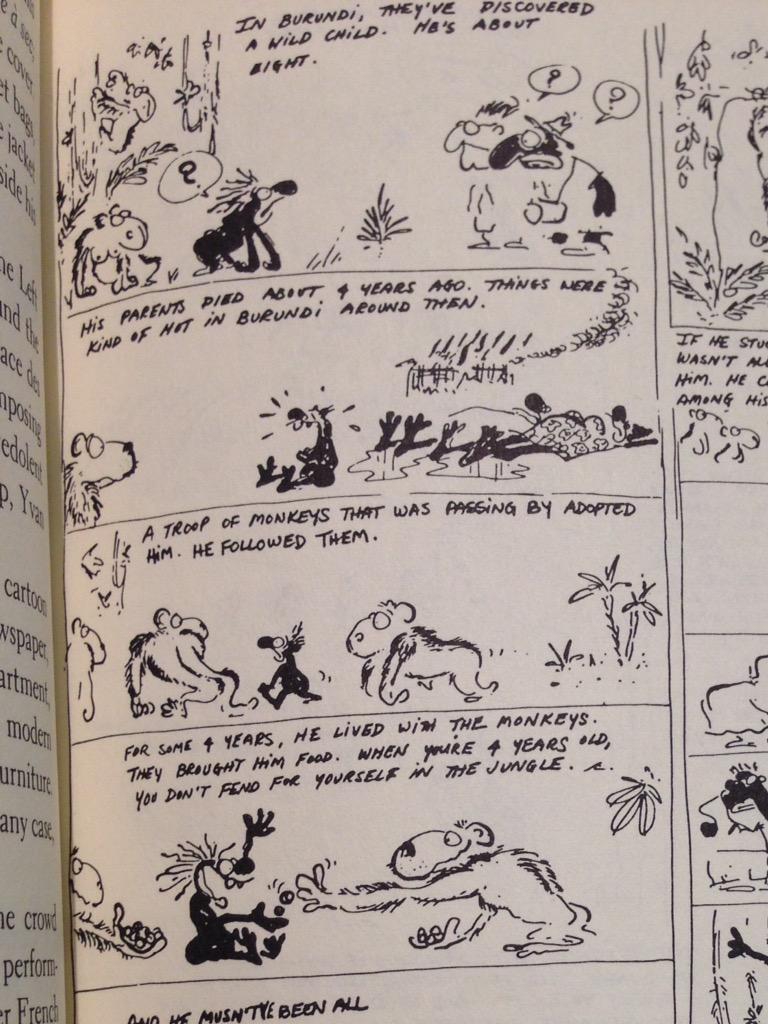 è a sec,
cover
et bags,
jacket
side his
ne Left
and the
ace des
mposing
edolent
p, Yvan
cartoon
wspaper,
artment,
modern
urniture.
any case,
he crowd
perform-
er French
IN BURUNDI, THEY'VE DISCOVERED
A WILD CHILD. HE'S ABOUT
EIGHT.
?
?
?
HIS PARENTS DIED ABOUT 4 YEARS AGO. THINGS WERE
KIND OF HOT IN BURUNDI AROUND THEN.
A TROOP OF MONKEYS THAT WAS PASSING BY ADOPTED
HIM. HE FOLLOWED THEM.
FOR SOME 4 YEARS, HE LIVED WITH THE MONKEYS.
THEY BROUGHT HIM FOOD. WHEN YOU'RE 4 YEARS OLD,
YOU DON'T FEND FOR YOURSELF IN THE JUNGLE.
AND HE MUSN'T'VE BEEN ALL
IF HE STU
WASN'T AL
HIM. HE C
AMONG HIS